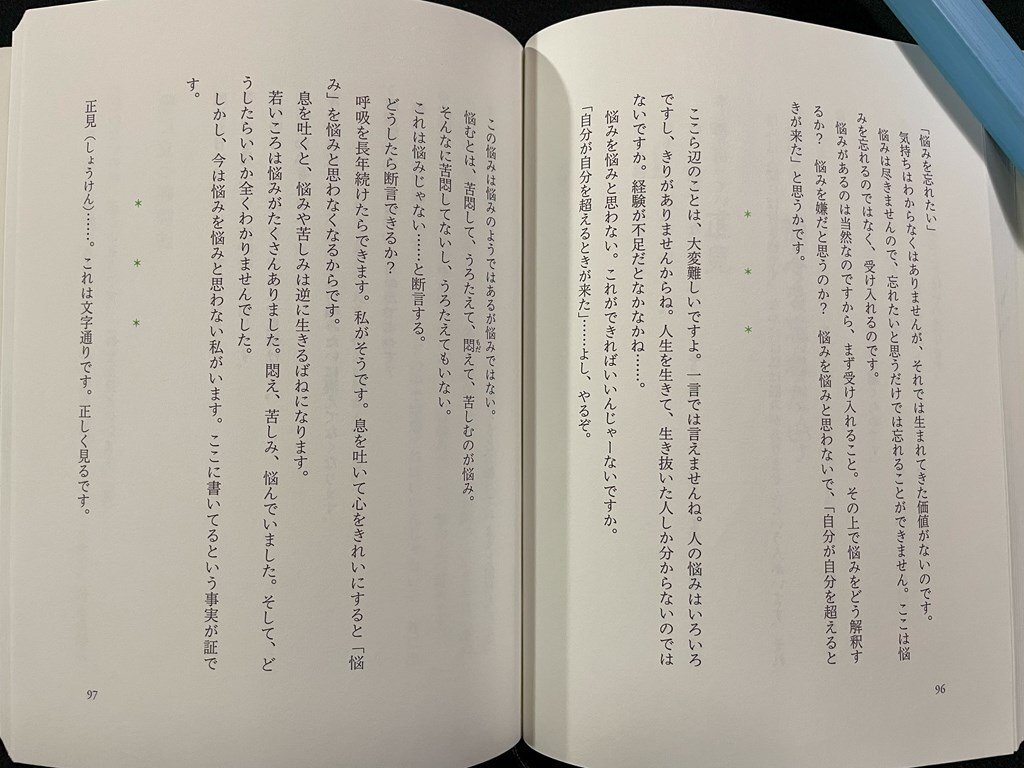 「悩みを忘れたい」
気持ちはわからなくはありませんが、それでは生まれてきた価値がないのです。
悩みは尽きませんので、忘れたいと思うだけでは忘れることができません。ここは悩
みを忘れるのではなく、受け入れるのです。
悩みがあるのは当然なのですから、まず受け入れること。その上で悩みをどう解釈す
るか？　悩みを嫌だと思うのか？　悩みを悩みと思わないで、「自分が自分を超えると
きが来た」と思うかです。
＊
＊
＊
ここら辺のことは、大変難しいですよ。一言では言えませんね。人の悩みはいろいろ
ですし、きりがありませんからね。人生を生きて、生き抜いた人しか分からないのでは
ないですか。経験が不足だとなかなかね……。
悩みを悩みと思わない。これができればいいんじゃーないですか。
「自分が自分を超えるときが来た」……よし、やるぞ。
96
この悩みは悩みのようではあるが悩みではない。
悩むとは、苦悶して、うろたえて、悶えて、苦しむのが悩み。
もだ
そんなに苦悶してないし、うろたえてもいない。
これは悩みじゃない……と断言する。
どうしたら断言できるか？
呼吸を長年続けたらできます。私がそうです。息を吐いて心をきれいにすると「悩
み」を悩みと思わなくなるからです。
息を吐くと、悩みや苦しみは逆に生きるばねになります。
若いころは悩みがたくさんありました。悶え、苦しみ、悩んでいました。そして、ど
うしたらいいか全くわかりませんでした。
しかし、今は悩みを悩みと思わない私がいます。ここに書いてるという事実が証で
す。
＊
＊
＊
正見（しょうけん）……。これは文字通りです。正しく見るです。
97